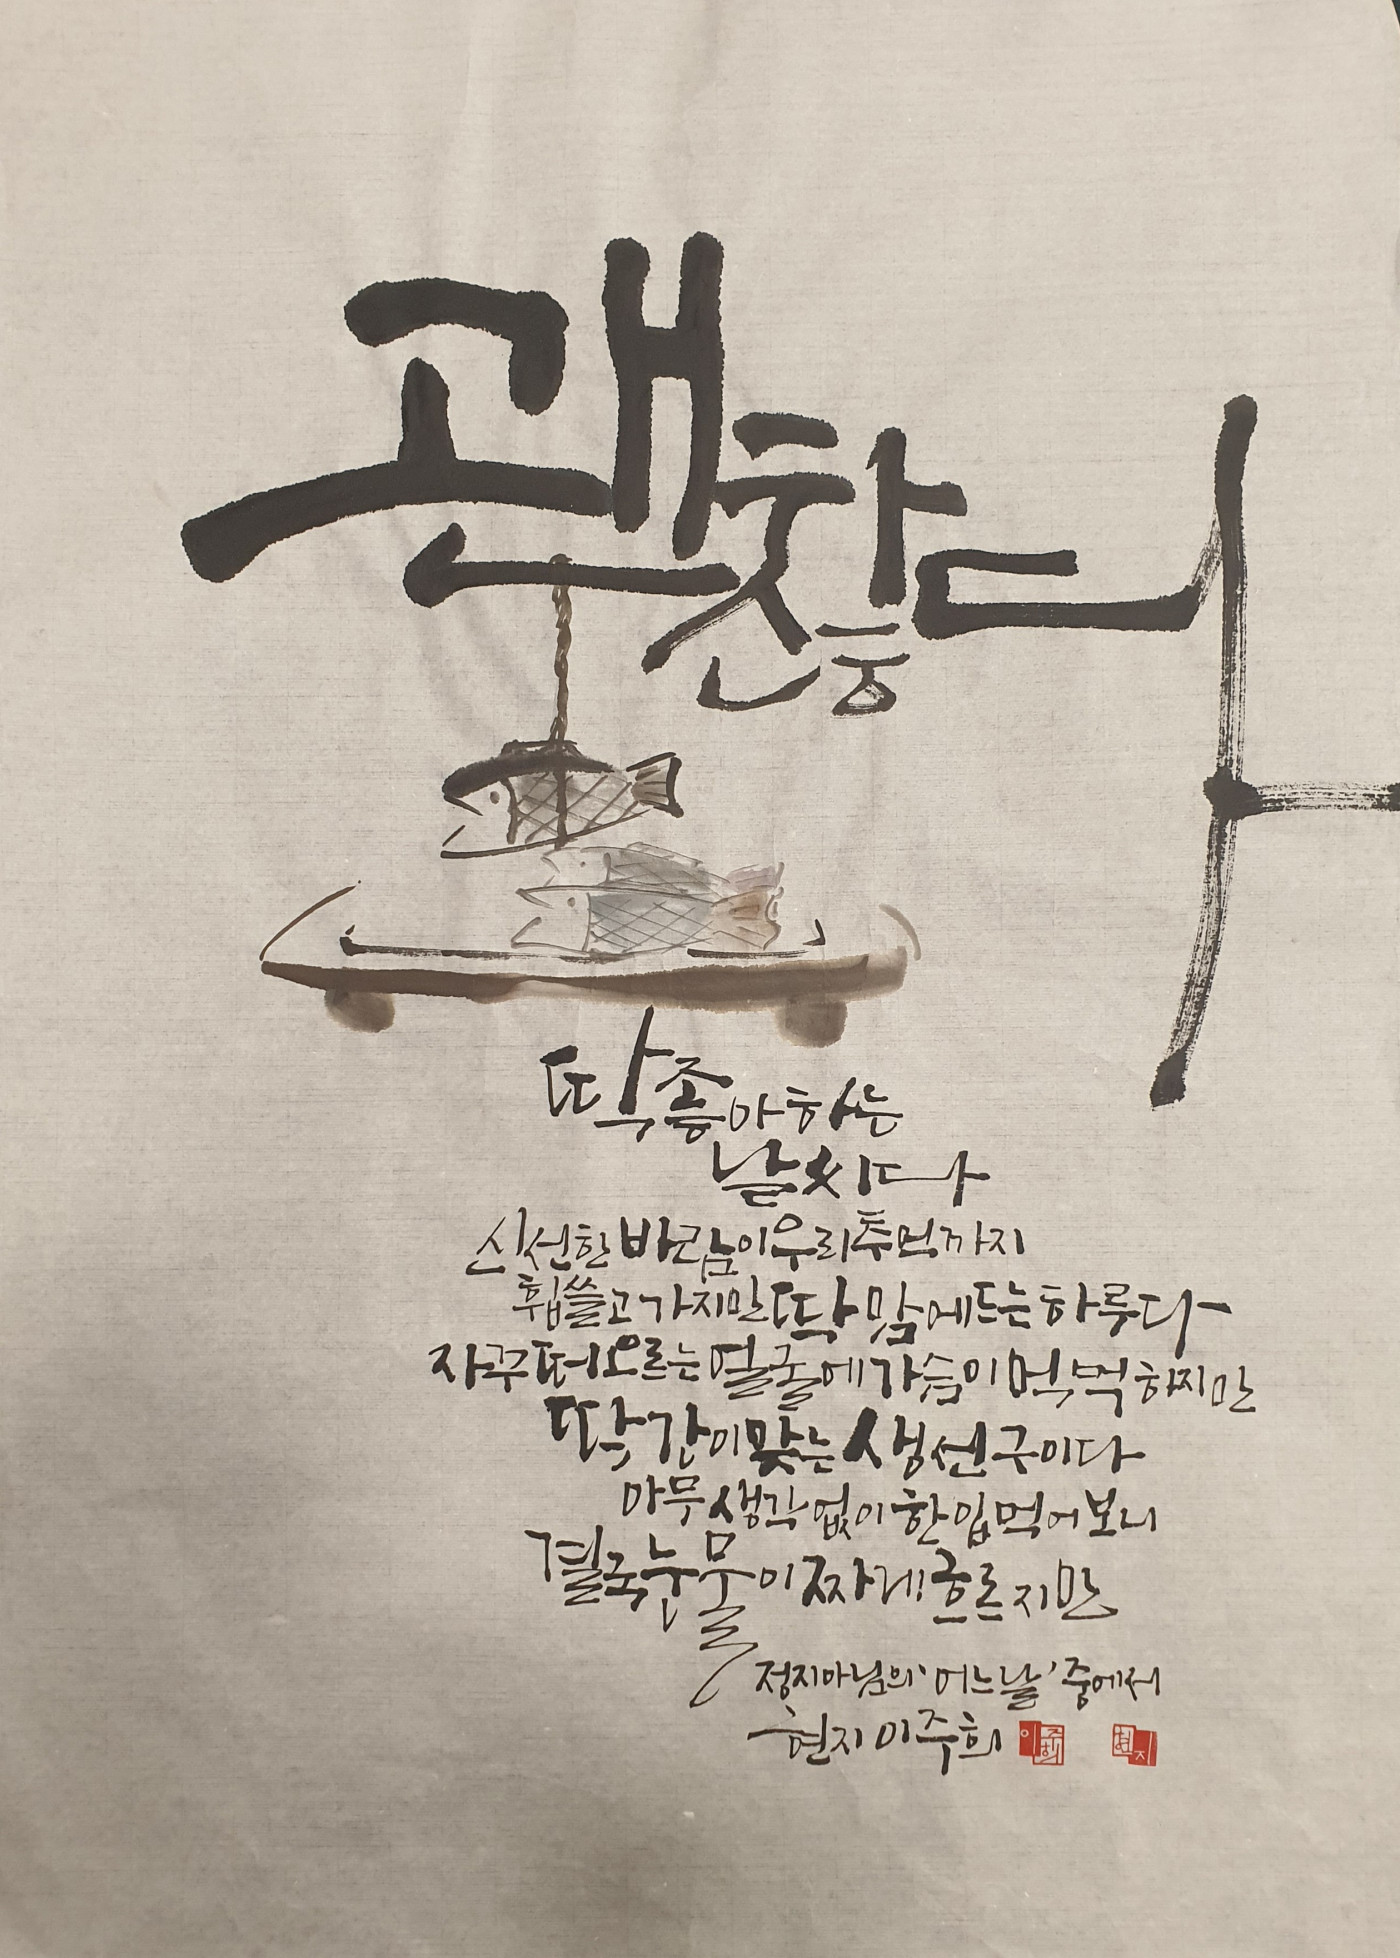 괜찮다
딱 좋아하는
날씨다
신선한 바람이 우리 추억까지
휩쓸고 가지만 딱 맘에 드는 하루다
자꾸 떠오르는 얼굴에 가슴이 먹먹하지만
딱 간이 맞는 생선구이다
아무 생각 없이 한 입 먹어보니
결국 눈물이 짜게 흐르지만
정지아님의 '어느날' 중에서
현지 이주희
이주희 현지